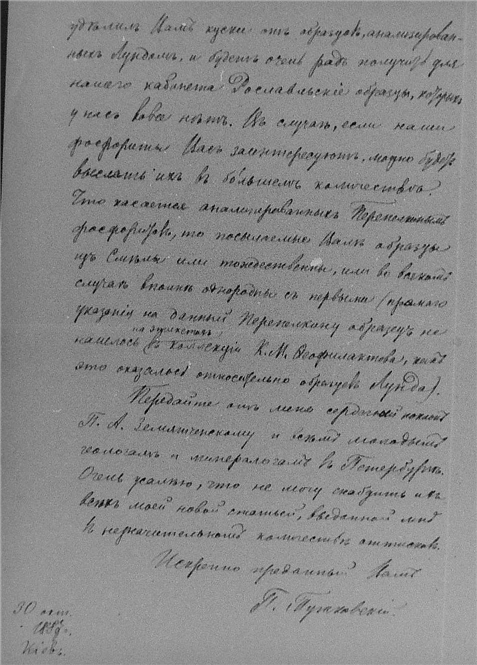 удѣлилъ Вамъ куски отъ образцовъ, анализирован-
ныхъ Лундомъ, и будетъ очень радъ получить для
нашего кабинета Рославльскіе образцы, которыхъ
у насъ вовсе нѣтъ. Въ случаѣ, если наши
фосфориты Васъ заинтересуютъ, можно будетъ
выслать ихъ въ бо́льшемъ количествѣ.
Что касается анализированныхъ Перепелкинымъ
фосфоритовъ, то посылаемые Вамъ образцы
изъ Смѣлы или тождественны, или во всякомъ
случаѣ вполнѣ однородны съ первыми (прямого
указанія на данный Перепелкину образецъ не
на этикетахъ
нашлось въ коллекціи К. М. Ѳеофилактова, какъ
это оказалось относительно образцовъ Лунда).
Передайте отъ меня сердечный поклонъ
П. А. Земятченскому и всѣмъ молодымъ
геологамъ и минералогамъ въ Петербургѣ.
Очень жалѣю, что не могу снабдить ихъ
всѣхъ моей новой статьей, выданной мнѣ
въ незначительномъ количествѣ оттисковъ.
Искренно преданный Вамъ
П. Тутковскій
30 окт.
Кіевъ.